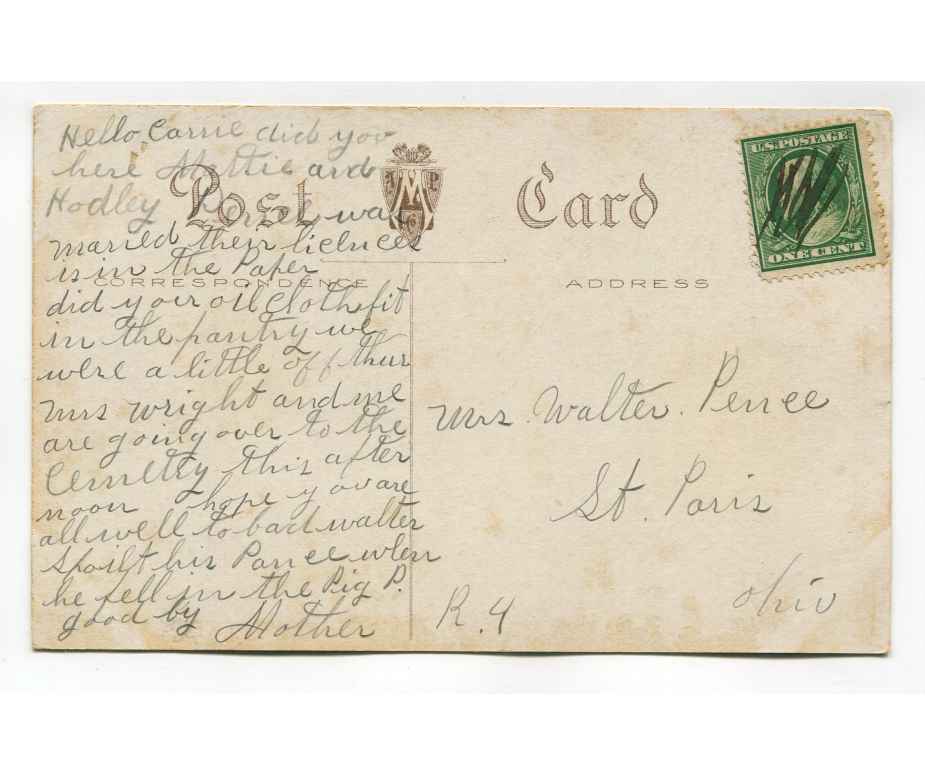 Hello Carrie did you
here Mottie and
Hodley Pence was
maried their licences
is in the Paper
did your oil cloth fit
in the pantry we
were a little off thur
Mrs wright and me
are going over to the
Cemetry this after
noon hope you are
all well to bad walter
spoilt his Pance when
he fell in the Pig P.
good by Mother
Post Card
A M P
CORRESPONDENCE
ADDRESS
U.S. POSTAGE
ONE CENT
Mrs. Walter. Pence
St. Paris
Ohio
R. 4